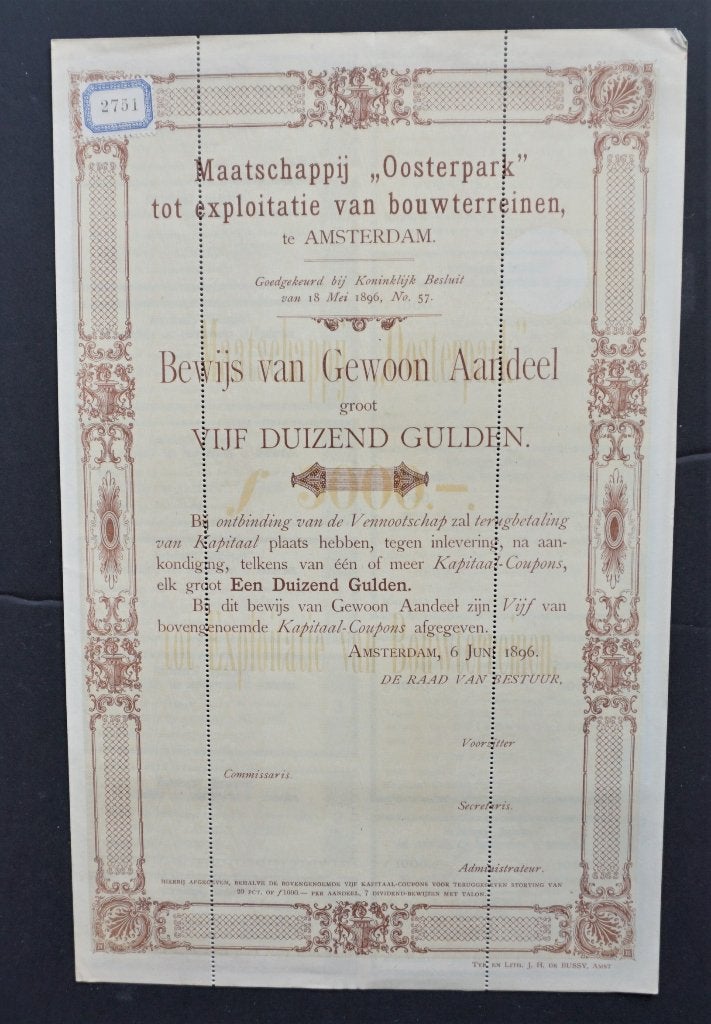 2751
Maatschappij „Oosterpark"
tot exploitatie van bouwterreinen,
te AMSTERDAM.
Goedgekeurd bij Koninklijk Besluit
van 18 Mei 1896, No. 57.
Maatschappij „Oosterpark"
Bewijs van Gewoon Aandeel
groot
VIJF DUIZEND GULDEN.
f 5000.—.
Bij ontbinding van de Vennootschap zal terugbetaling
van Kapitaal plaats hebben, tegen inlevering, na aan-
kondiging, telkens van één of meer Kapitaal-Coupons,
elk groot Een Duizend Gulden.
Bij dit bewijs van Gewoon Aandeel zijn Vijf van
bovengenoemde Kapitaal-Coupons afgegeven.
tot Exploitatie van Bouwterreinen,
AMSTERDAM, 6 JUNI 1896.
DE RAAD VAN BESTUUR,
Voorzitter
Commissaris.
Secretaris.
Administrateur.
HIERBIJ AFGEGEVEN, BEHALVE DE BOVENGENOEMDE VIJF KAPITAAL-COUPONS VOOR TERUGGEGEVEN STORTING VAN
20 PCT. OF f 1000.— PER AANDEEL, 7 DIVIDEND-BEWIJZEN MET TALON.
TYP. EN LITH. J. H. DE BUSSY, AMST